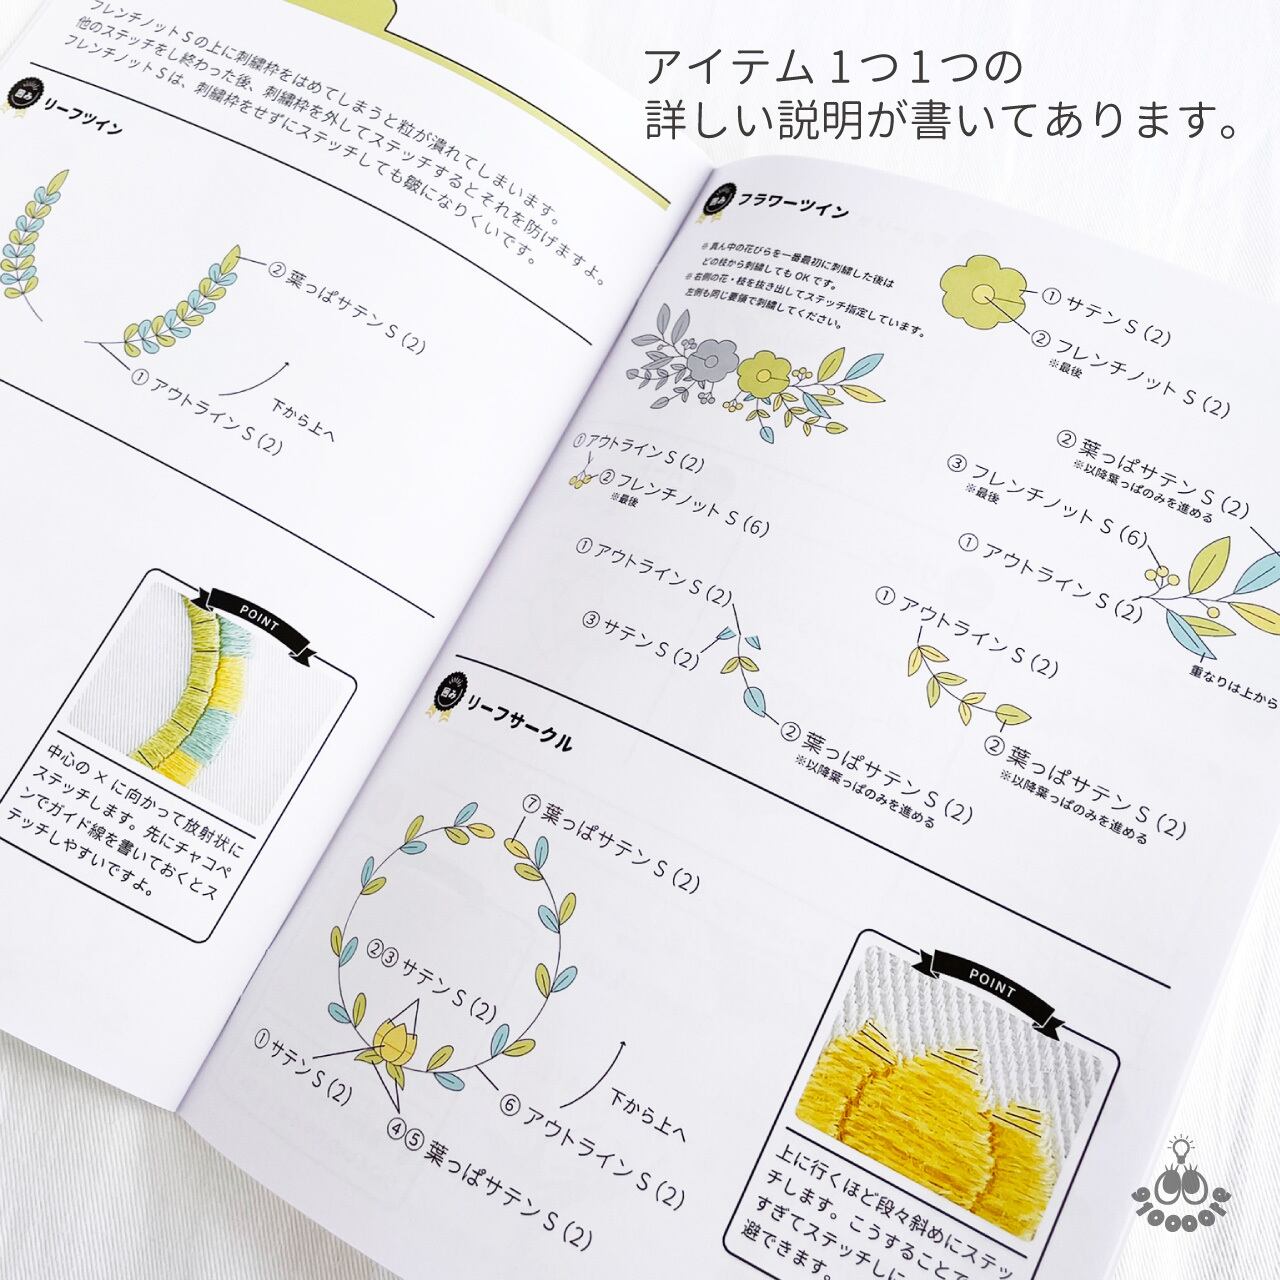 アイテム1つ1つの
詳しい説明が書いてあります。
フレンチノットSの上に刺繍枠をはめてしまうと粒が潰れてしまいます。
他のステッチをし終わった後、刺繍枠を外してステッチするとそれを防げますよ。
フレンチノットSは、刺繍枠をせずにステッチしても皺になりくいです。
囲み
リーフツイン
②葉っぱサテンS(2)
①アウトラインS(2)
下から上へ
POINT
中心の×に向かって放射状に
ステッチします。先にチャコペ
ンでガイド線を書いておくとス
テッチしやすいですよ。
囲み
フラワーツイン
※真ん中の花びらを一番最初に刺繍した後は
どの枝から刺繍してもOKです。
※右側の花・枝を抜き出してステッチ指定しています。
左側も同じ要領で刺繍してください。
①サテンS(2)
②フレンチノットS(2)
※最後
①アウトラインS(2)
②フレンチノットS(6)
※最後
②葉っぱサテンS(2)
※以降葉っぱのみを進める
③フレンチノットS(6)
※最後
①アウトラインS(2)
重なりは上から
①アウトラインS(2)
③サテンS(2)
②葉っぱサテンS(2)
※以降葉っぱのみを進める
①アウトラインS(2)
②葉っぱサテンS(2)
※以降葉っぱのみを進める
囲み
リーフサークル
⑦葉っぱサテンS(2)
②③サテンS(2)
①サテンS(2)
④⑤葉っぱサテンS(2)
⑥アウトラインS(2)
下から上へ
POINT
上に行くほど段々斜めにステッ
チします。こうすることで
すぎてステッチしに
避できます。